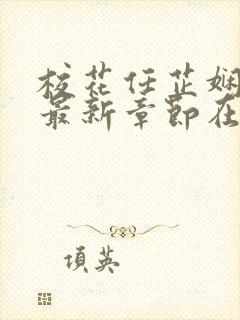 校花任芷娴
最新章節在
項英